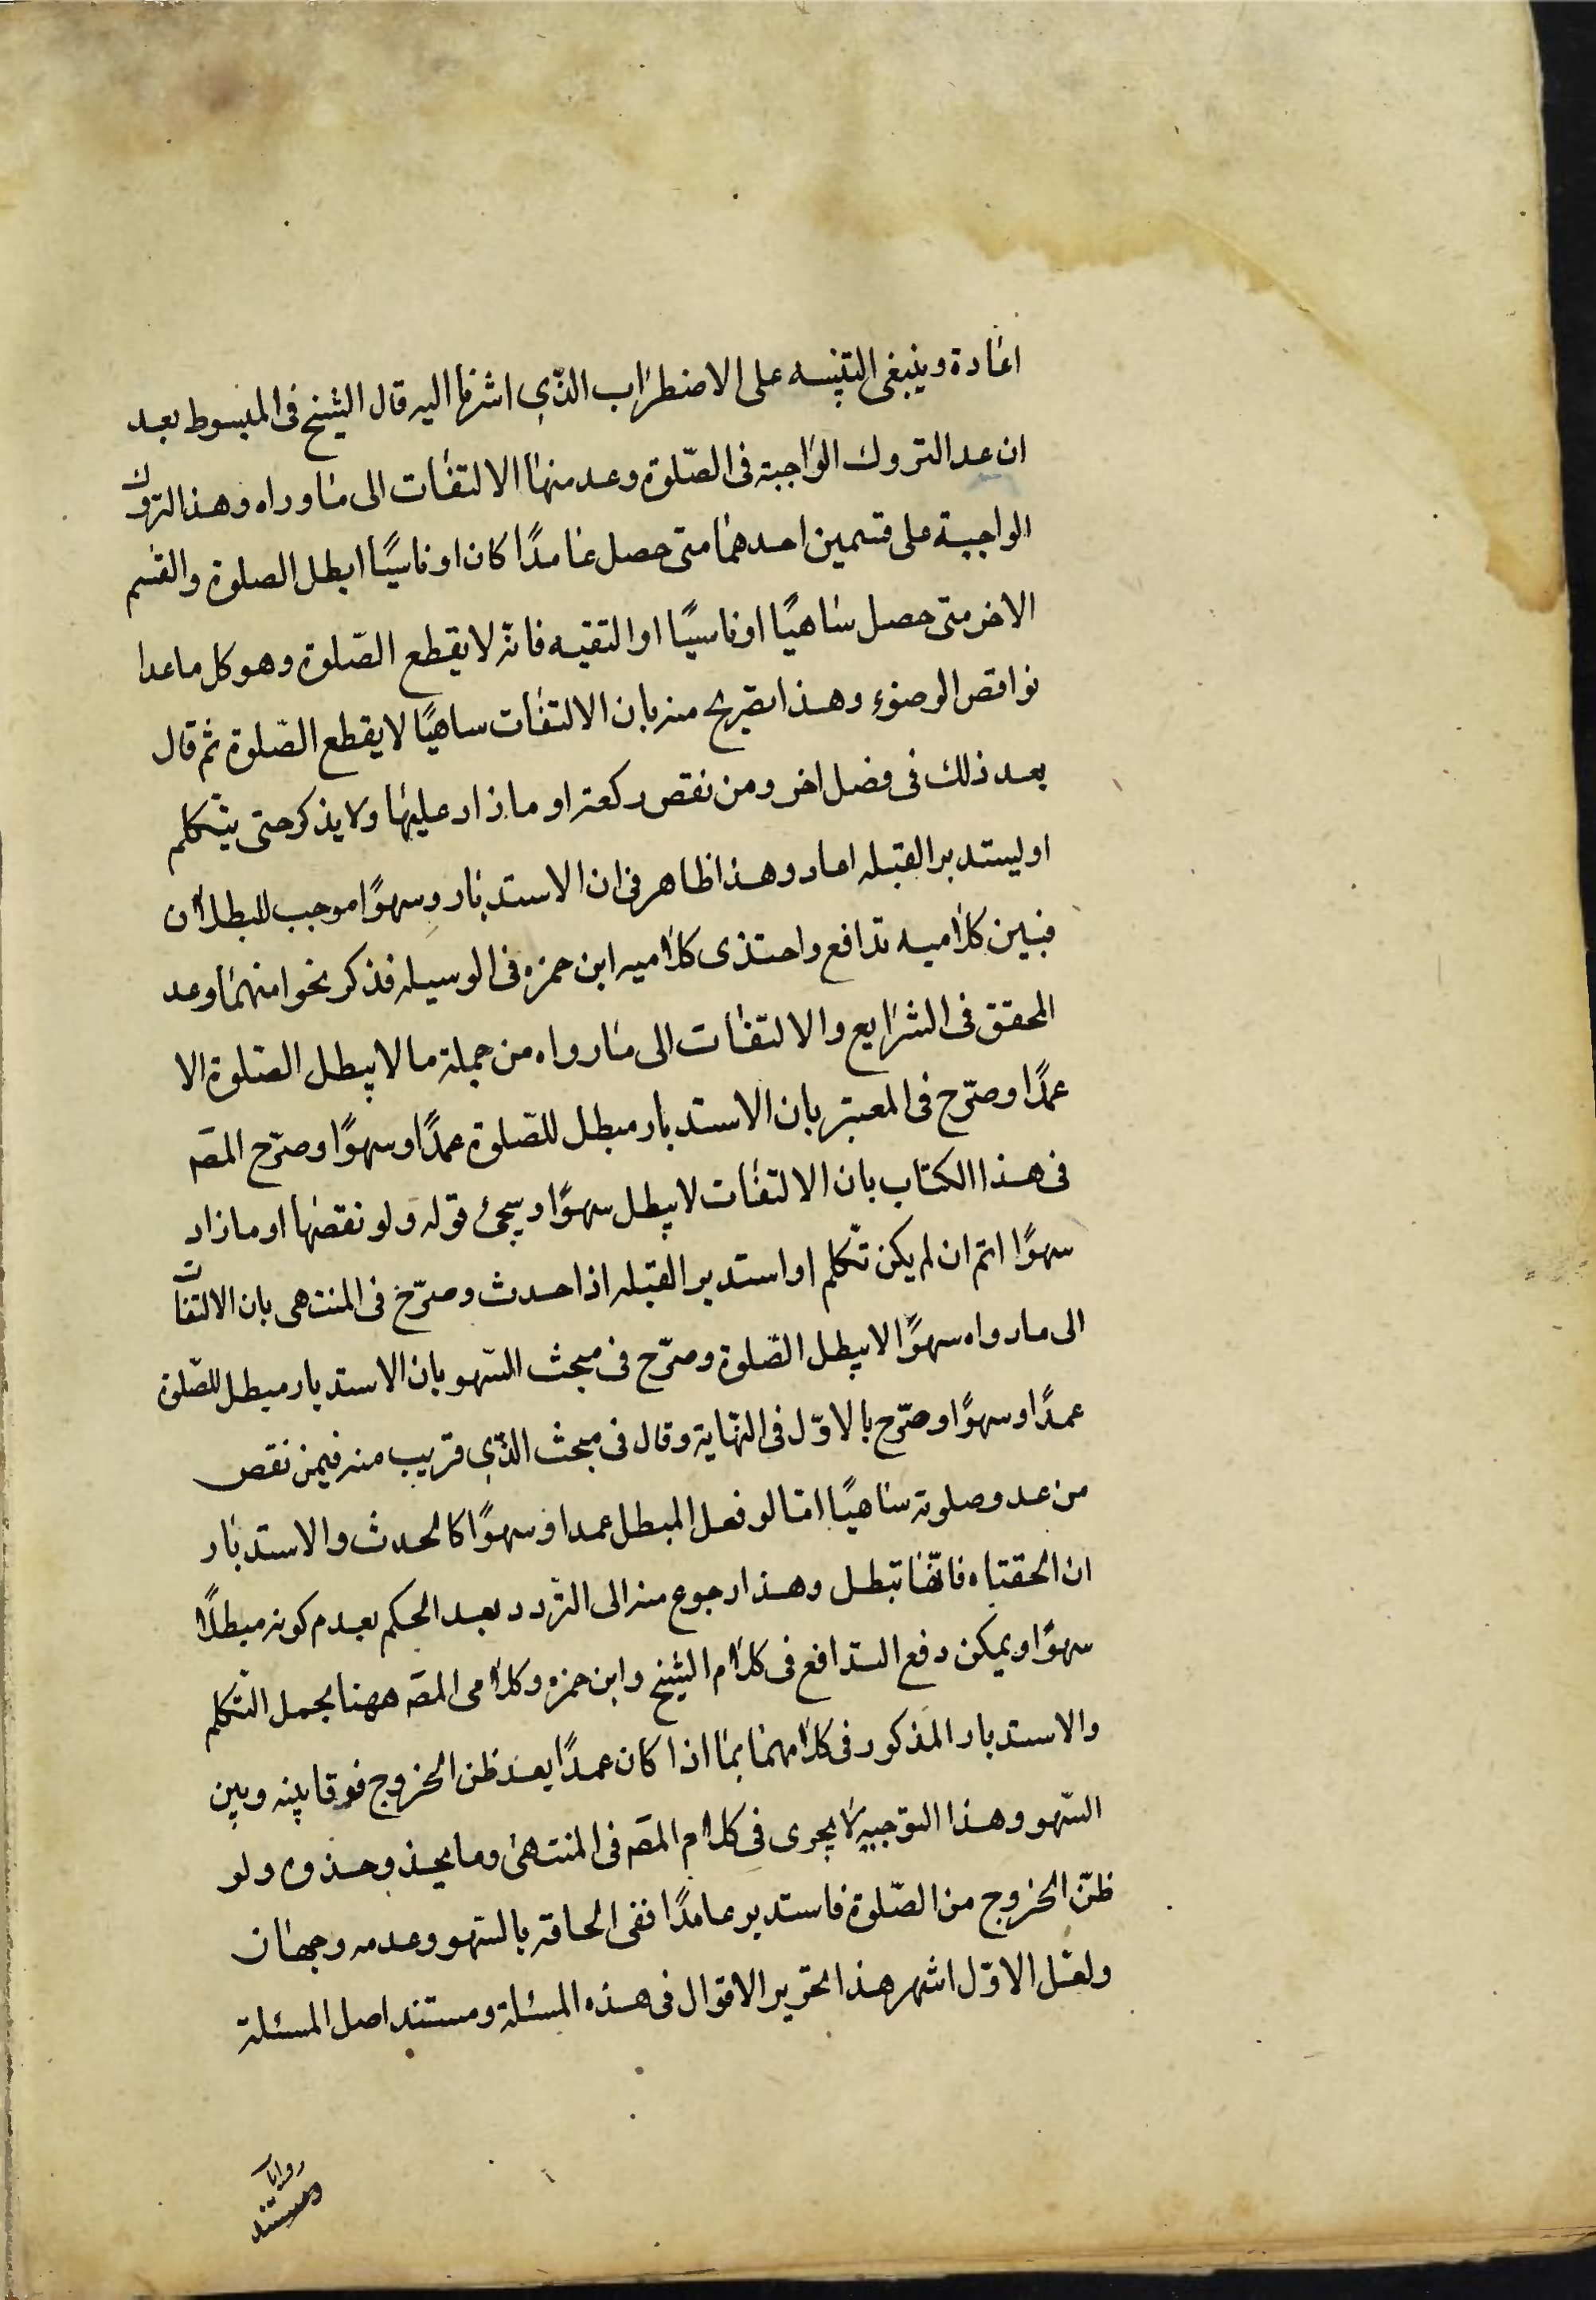 اعادة وينبغى التنبيه على الاضطراب الذى اشرنا اليه قال الشيخ فى المبسوط بعد
ان عد التروك الواجبة فى الصّلوة وعد منها الالتفات الى ما وراه وهذا التروك
الواجبة على قسمين احدهما متى حصل عامدًا كان او ناسيًا ابطل الصلوة والقسم
الاخر متى حصل ساهيًا او ناسيًا او التقيه فانّه لا يقطع الصّلوة وهو كل ما عدا
نواقص الوضوء وهذا تصريح منه بان الالتفات ساهيًا لا يقطع الصّلوة ثم قال
بعد ذلك فى فصل اخر ومن نقص ركعة او ما زاد عليها ولا يذكر حتى يتكلم
او ليستدبر القبله اعاد وهذا ظاهر فى ان الاستدبار وسهوًا موجب للبطلان
فبين كلاميه تدافع واحتذى كلاميه ابن حمزه فى الوسيله فذكر نحوا منهما وعد
المحقق فى الشرايع والالتفات الى ما رواه من جملة ما لا يبطل الصّلوة الا
عمدًا وصرّح فى المعتبر بان الاستدبار مبطل للصّلوة عمدًا وسهوًا وصرّح المصَ
فى هذا الكتاب بان الالتفات لا يبطل سهوًا وسيجئ قوله ولو نقصها او ما زاد
سهوًا اتم ان لم يكن تكلم او استدبر القبله اذا حدث وصرّح فى المنتهى بان الالتفات
الى ما رواه سهوًا لا يبطل الصّلوة وصرّح فى مبحث السّهو بان الاستدبار مبطل للصّلوة
عمدًا وسهوًا وصرّح بالاوّل فى النهاية وقال فى مبحث الذى قريب منه فيمن نقص
من عدد صلوته ساهيًا امّا لو فعل المبطل عمدا وسهوًا كالحدث والاستدبار
ان الحقناه فانّها تبطل وهذا رجوع منه الى التردد بعد الحكم بعدم كونه مبطلًا
سهوًا ويمكن دفع التدافع فى كلام الشيخ وابن حمزه وكلامى المصَ ههنا بحمل التكلم
والاستدبار المذكور فى كلامهما بما اذا كان عمدًا بعد ظن الخروج فوقا بينه وبين
السّهو وهذا التوجيه لا يجرى فى كلام المصَ فى المنتهى وما يحذو حذوه ولو
ظنّ الخروج من الصّلوة فاستدبر عامدًا ففى الحاقه بالسّهو وعدمه وجهان
ولعل الاوّل اشهر هذا تحرير الاقوال فى هذه المسئلة ومستند اصل المسئلة
روايا
ومستند